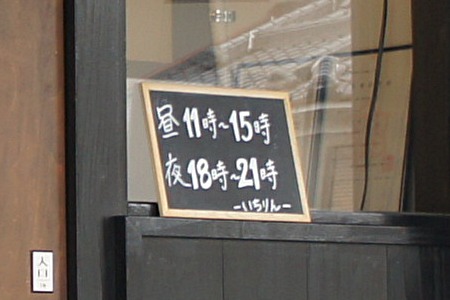 昼11時~15時
夜18時~21時
-いちりん-
入口